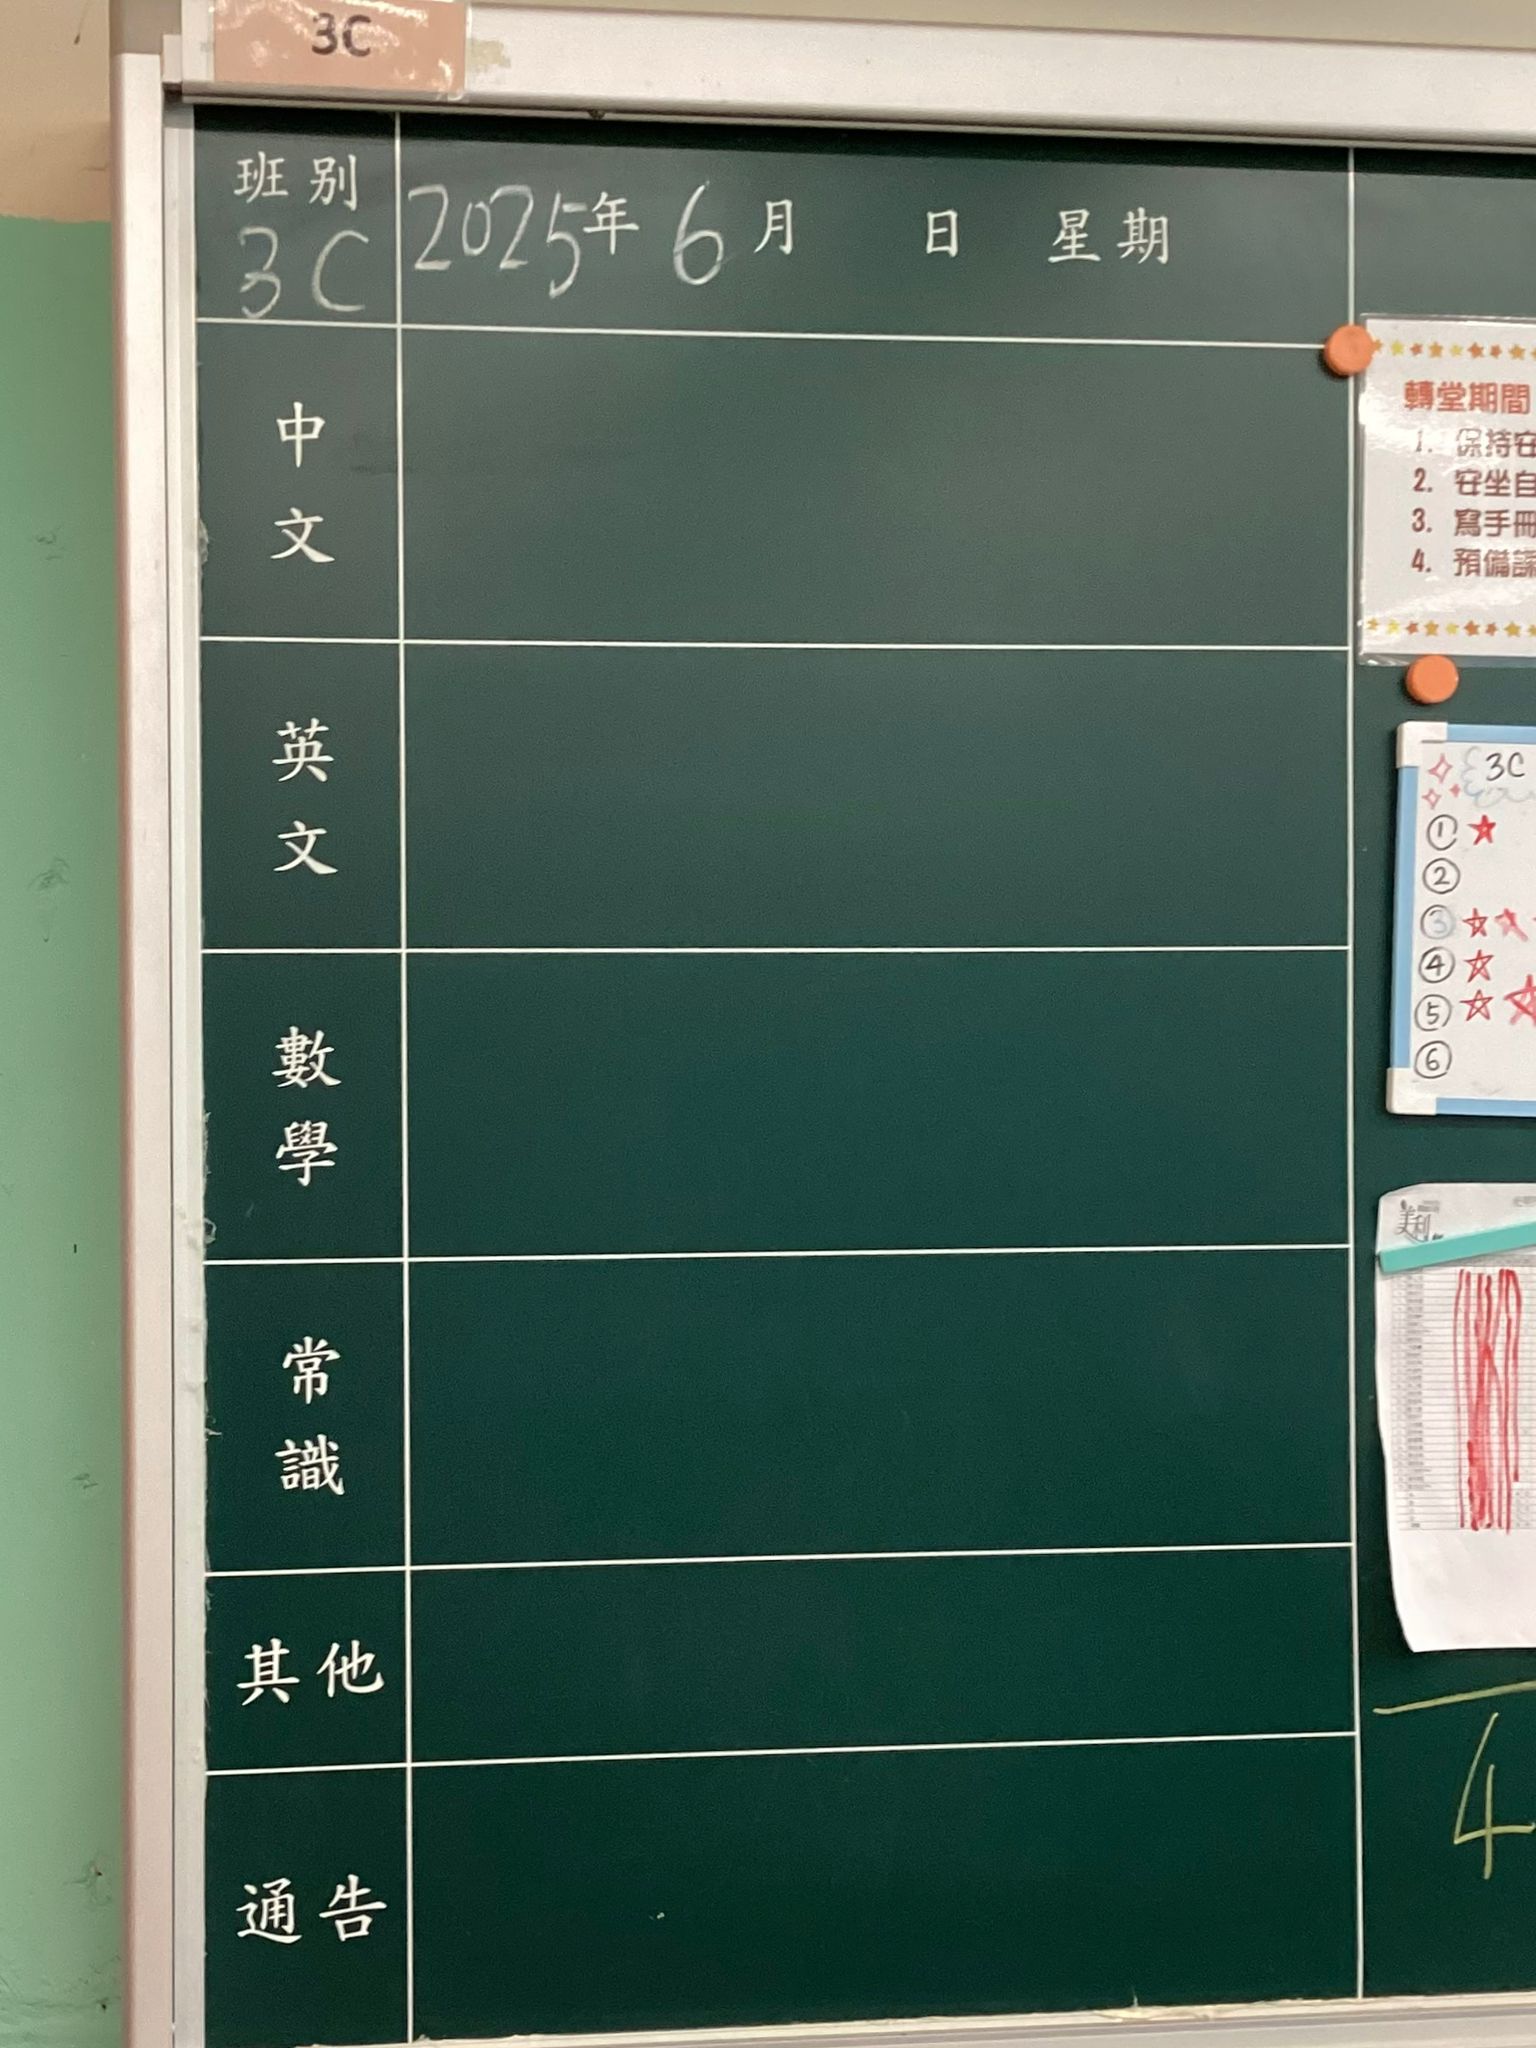 3C
班别
3C
2025年 6月 日 星期
中文
英文
數學
常識
其他
通告
轉堂期間
1. 保持安
2. 安坐自
3. 寫手冊
4. 預備課
3C
①
②
③
④
⑤
⑥
4